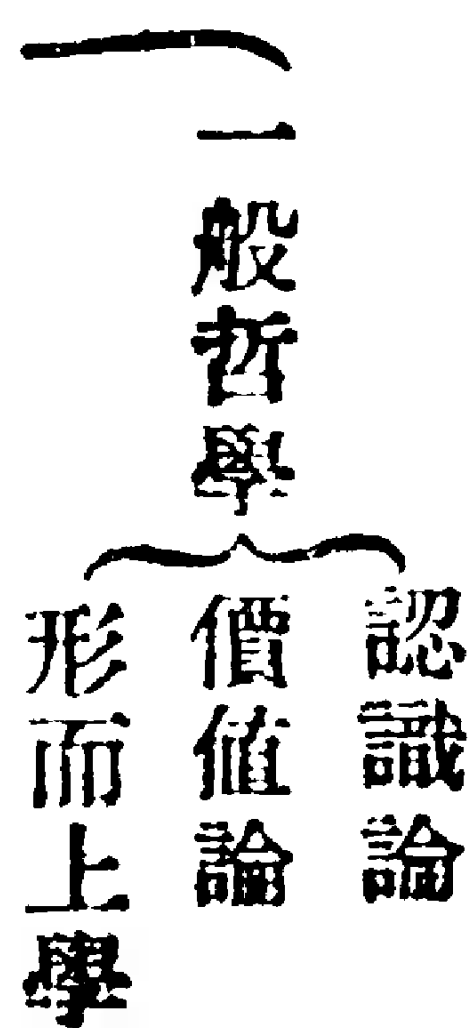 一般哲學
認識論
價値論
形而上學